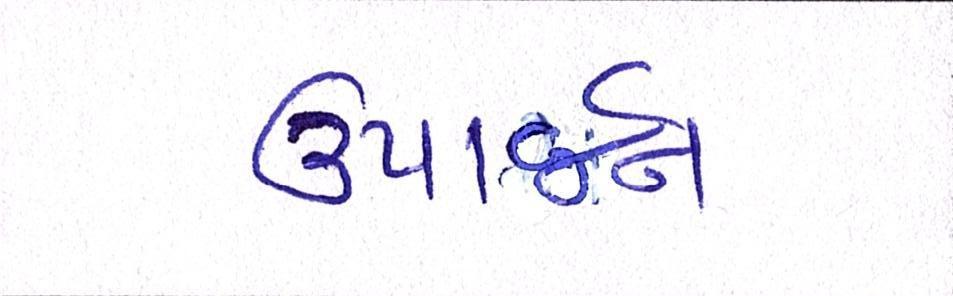 ઉપાર્જન